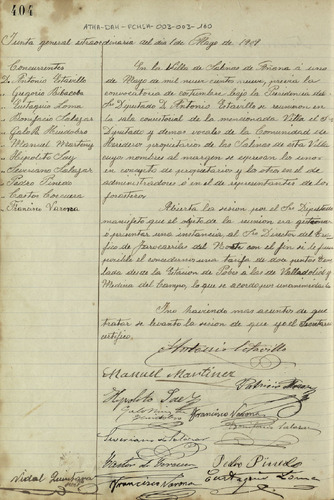 404
ATHA-DAH-FCMSA-003-003-160
Junta general extraordinaria del dia 1 de Mayo de 1909
Concurrentes
D. Antonio Estavillo
" Gregorio Ribacoba
" Eustaquio Loma
" Bonifacio Salazar
" Galo R. Miudobro
" Manuel Martinez
" Hipolito Saez
" Severiano Salazar
" Pedro Pinedo
" Castor Corcuera
" Francisco Varona
En la Villa de Salinas de Añana á uno de
Mayo de mil nueve cientos nueve, previa la
convocatoria de costumbre, bajo la Presidencia del
Sr. Diputado D. Antonio Estavillo se reunieron en
la sala consistorial de la mencionada Villa el Sr.
Diputado y demas vocales de la Comunidad de
Herederos propietarios de las Salinas de esta Villa
cuyos nombres al margen se expresan los unos
en concepto de propietarios y los otros en el de
administradores ó en el de representantes de los
forasteros
Abierta la sesion por el Sr. Diputado
manifestó que el objeto de la reunion era
presentar una instancia al Sr. Director del
de ferrocarriles del Norte con el fin si le fuera
posible el concedernos una tarifa de dos puntos
desde la Estacion de Pobes á las de Valladolid y
Medina del Campo, lo que se acordó por unanimidad
Y no habiendo mas asuntos de que
tratar se levantó la sesion de que yo el Secretario
certifico,
Antonio Estavillo
Manuel Martinez
Patricio
Hipolito Saez
Galo Ruiz
Miudobro
Francisco Varona
Bonifacio Salazar
Severiano de Salazar
Castor de Corcuera
Pedro Pinedo
Vidal Quintana
Francisco Varona
Eustaquio Loma